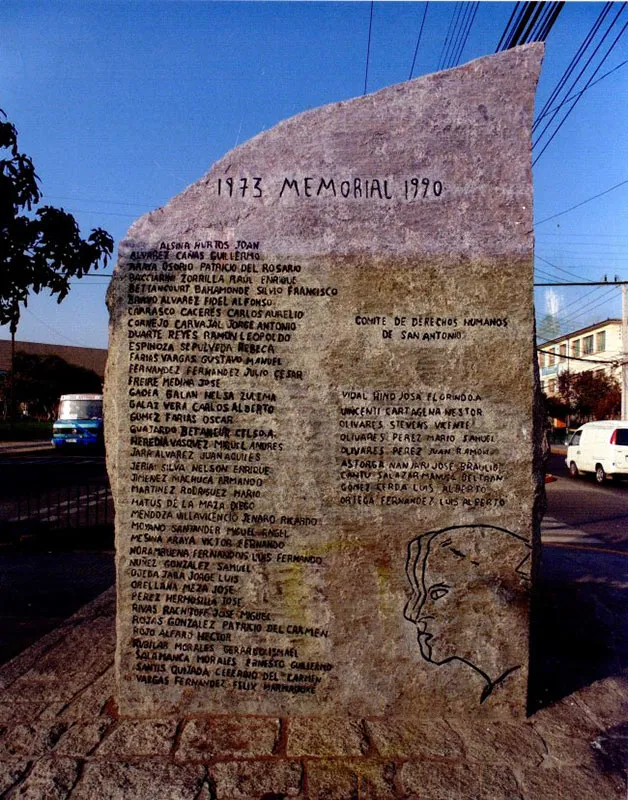 1973 MEMORIAL 1990
ALSINA HURTOS JOAN
ALVAREZ CAÑAS GUILLERMO
ARAYA OSORIO PATRICIO DEL ROSARIO
BACCIARINI ZORRILLA RAUL ENRIQUE
BETTANCOURT BAHAMONDE SILVIO FRANCISCO
BRAVO ALVAREZ FIDEL ALFONSO
CARRASCO CACERES CARLOS AURELIO
CORNEJO CARVAJAL JORGE ANTONIO
DUARTE REYES RAMON LEOPOLDO
ESPINOZA SEPULVEDA REBECA
FARIAS VARGAS GUSTAVO MANUEL
FERNANDEZ FERNANDEZ JULIO CESAR
FREIRE MEDINA JOSE
GADEA GALAN NELSA ZULEMA
GALAZ VERA CARLOS ALBERTO
GOMEZ FARIAS OSCAR
GUAJARDO BETANCUR CELSO A.
HEREDIA VASQUEZ MIGUEL ANDRES
JARA ALVAREZ JUAN AQUILES
JERIA SILVA NELSON ENRIQUE
JIMENEZ MACHUCA ARMANDO
MARTINEZ RODRIGUEZ MARIO
MATUS DE LA MAZA DIEGO
MENDOZA VILLAVICENCIO JENARO RICARDO
MOYANO SANTANDER MIGUEL ANGEL
MESINA ARAYA VICTOR FERNANDO
NORAMBUENA FERNANDOIS LUIS FERNANDO
NUÑEZ GONZALEZ SAMUEL
OJEDA JARA JORGE LUIS
ORELLANA MEZA JOSE
PEREZ HERMOSILLA JOSE
RIVAS RACHITOFF JOSE MIGUEL
ROJAS GONZALEZ PATRICIO DEL CARMEN
ROJO ALFARO HECTOR
RUBILAR MORALES GERARDO ISMAEL
SALAMANCA MORALES ERNESTO GUILLERMO
SANTIS QUIJADA CEFERINO DEL CARMEN
VARGAS FERNANDEZ FELIX MARMADUKE
COMITE DE DERECHOS HUMANOS
DE SAN ANTONIO
VIDAL HINO JOSA FLORINDO A.
VINCENTI CARTAGENA NESTOR
OLIVARES STEVENS VICENTE
OLIVARES PEREZ MARIO SAMUEL
OLIVARES PEREZ JUAN RAMON
ASTORGA NANJARI JOSE BRAULIO
CANTU SALAZAR MANUEL BELTRAN
GOMEZ CERDA LUIS ALBERTO
ORTEGA FERNANDEZ LUIS ALBERTO